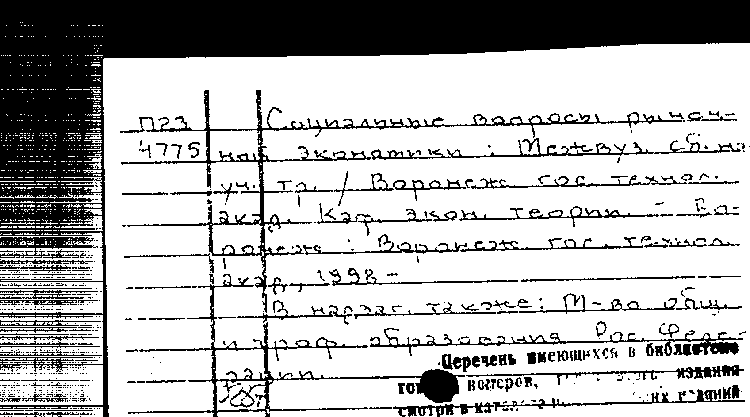 П23 Социальные вопросы рыноч-
4775 ной экономики : Межвуз. сб. на-
уч. тр. / Воронеж. гос. технол.
акад. Каф. экон. теории. - Во-
ронеж : Воронеж. гос. технол.
акад., 1998 -
В надзаг. также: М-во общ.
и проф. образования Рос. Феде-
рации.
Перечень имеющихся в библиотеке
номеров, издания
смотри в